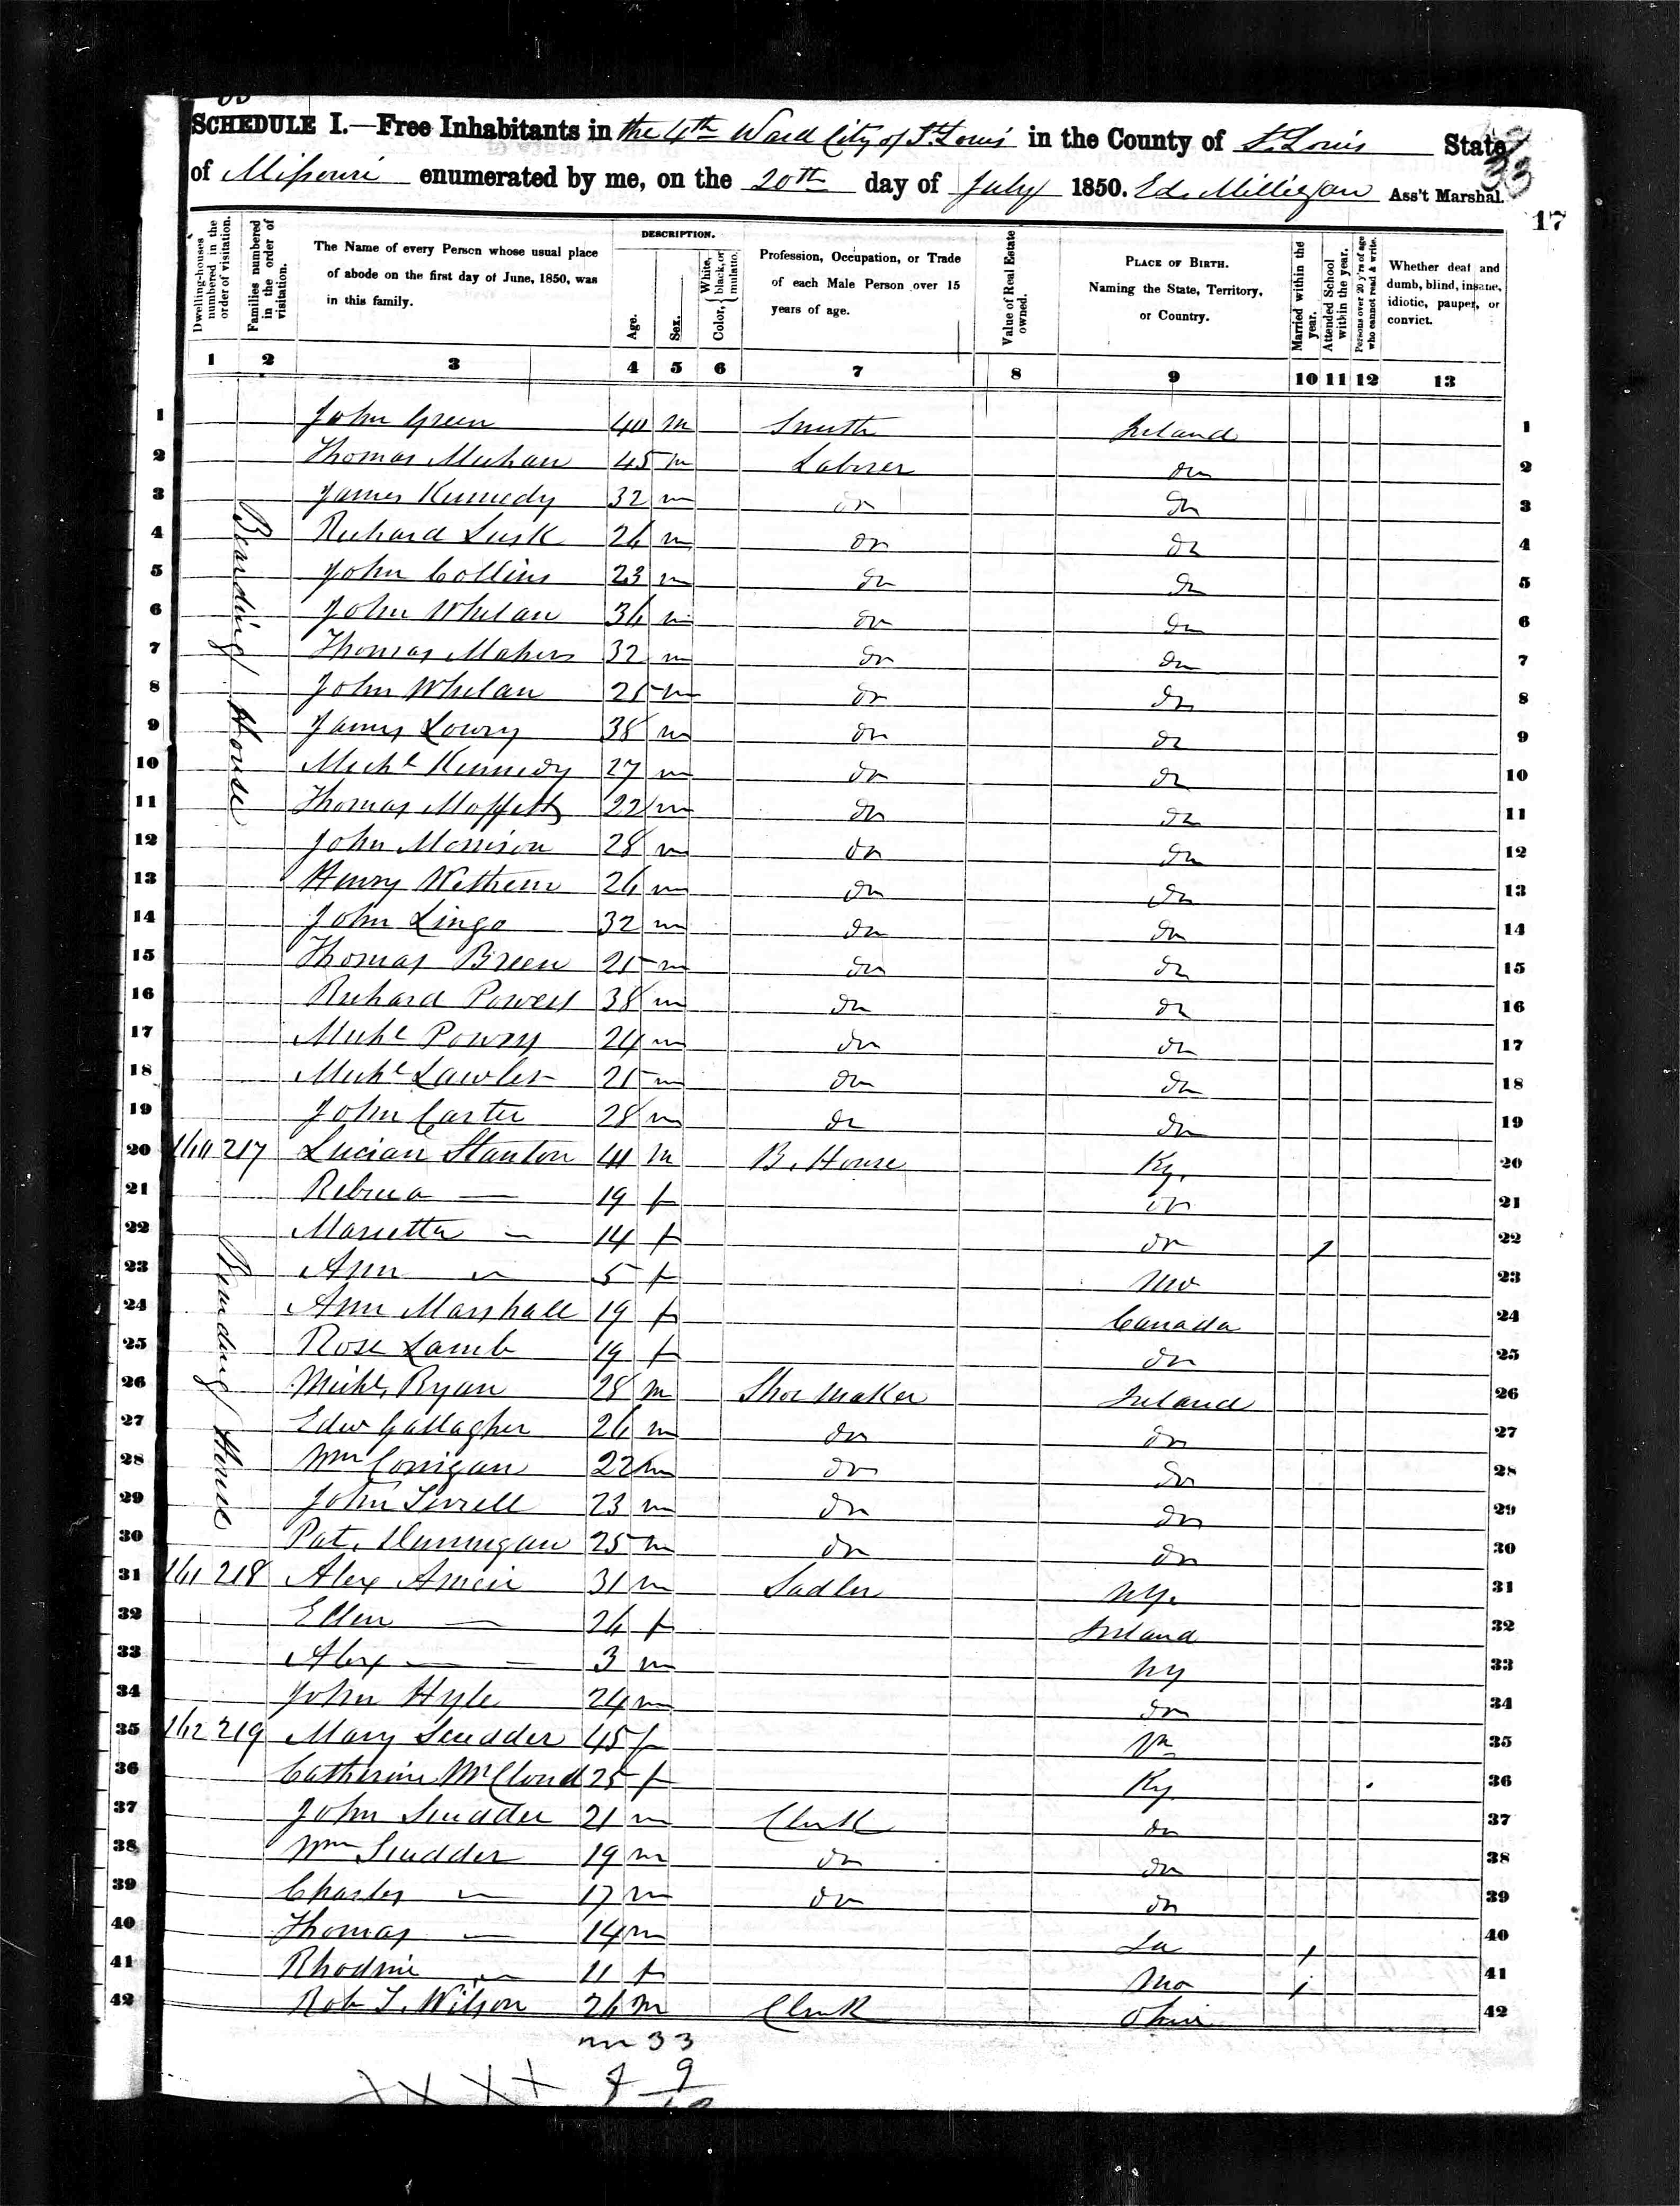 SCHEDULE I.—Free Inhabitants in the 4th Ward City of St. Louis in the County of St. Louis State
of Missouri enumerated by me, on the 20th day of July 1850. Ed. Milligan Ass't Marshal.
33
17
Dwelling-houses numbered in the order of visitation.
Families numbered in the order of visitation.
The Name of every Person whose usual place of abode on the first day of June, 1850, was in this family.
DESCRIPTION.
Age.
Sex.
Color, { White, black, or mulatto.
Profession, Occupation, or Trade of each Male Person over 15 years of age.
Value of Real Estate owned.
PLACE OF BIRTH. Naming the State, Territory, or Country.
Married within the year.
Attended School within the year.
Persons over 20 y'rs of age who cannot read & write.
Whether deaf and dumb, blind, insane, idiotic, pauper, or convict.
1 2 3 4 5 6 7 8 9 10 11 12 13
Boarding House
1 John Green 40 m Smith Ireland 1
2 Thomas Meehan 45 m Laborer do 2
3 James Kennedy 32 m do do 3
4 Richard Lusk 26 m do do 4
5 John Collins 23 m do do 5
6 John Whelan 36 m do do 6
7 Thomas Maher 32 m do do 7
8 John Whelan 25 m do do 8
9 James Lowry 38 m do do 9
10 Michl Kennedy 27 m do do 10
11 Thomas Moffett 22 m do do 11
12 John Morrison 28 m do do 12
13 Henry 26 m do do 13
14 John Lingo 32 m do do 14
15 Thomas Breen 25 m do do 15
16 Richard Powell 38 m do do 16
17 Michl 24 m do do 17
18 Michl Lawler 25 m do do 18
19 John Carter 28 m do do 19
20 160 217 Lucian Stanton 41 m B. House Ky. 20
Boarding House
21 Rebecca — 19 f do 21
22 Marietta — 14 f do / 22
23 Ann — 5 f Mo 23
24 Ann Marshall 19 f Canada 24
25 Rose Lamb 19 f do 25
26 Michl Ryan 28 m Shoe Maker Ireland 26
27 Edw Gallagher 26 m do do 27
28 Wm Corrigan 22 m do do 28
29 John Terrell 23 m do do 29
30 Pat. Dunnegan 25 m do do 30
31 161 218 Alex 31 m Sadler NY. 31
32 Ellen — 26 f Ireland 32
33 Alex — 3 m NY 33
34 John Hyle 24 m do 34
35 162 219 Mary Scudder 45 f Va 35
36 Catherine McCloud 25 f Ky 36
37 John Scudder 21 m Clerk do 37
38 Wm Scudder 19 m do do 38
39 Charles — 17 m do do 39
40 Thomas — 14 m La / 40
41 — 11 f Mo / 41
42 Rob T. Wilson 26 m Clerk Ohio 42
m 33
f 9